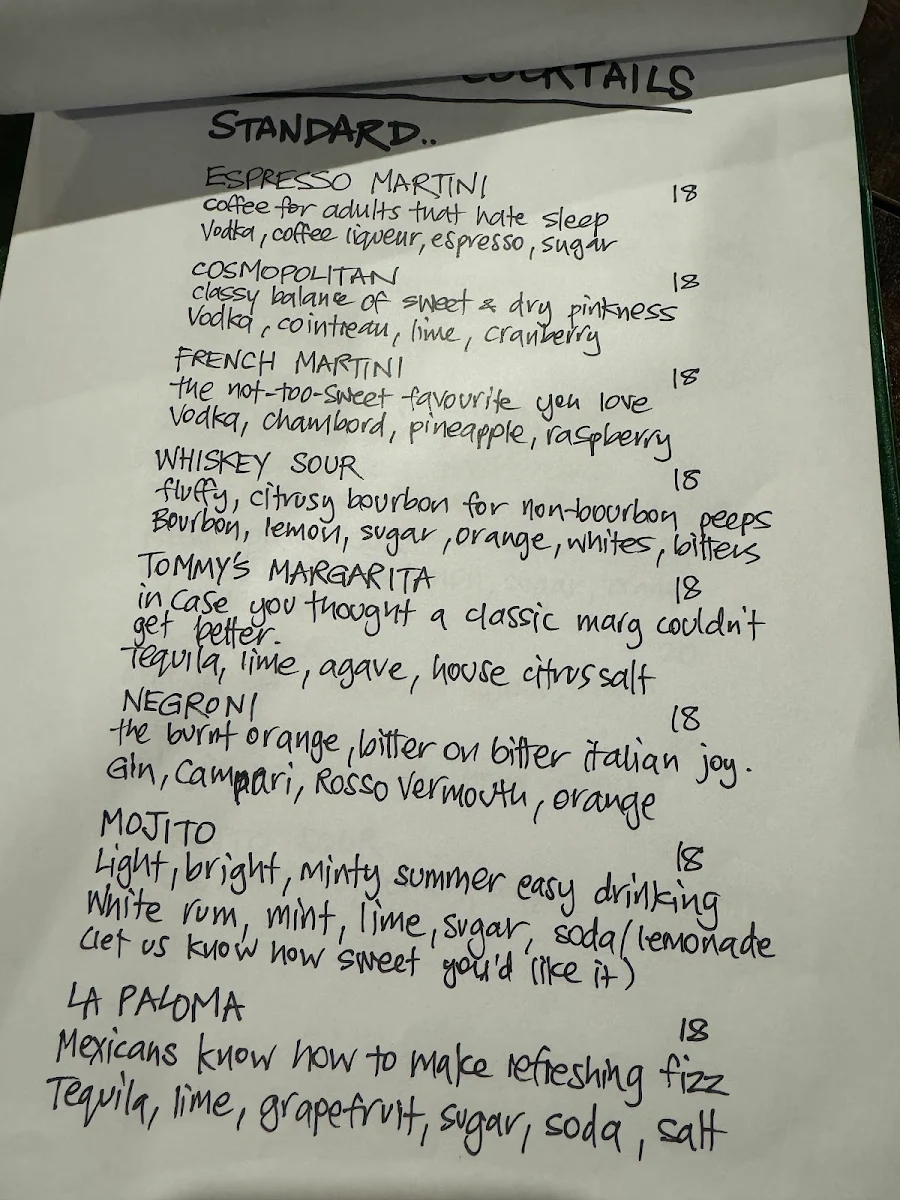 COCKTAILS
STANDARD..
ESPRESSO MARTINI 18
coffee for adults that hate sleep
Vodka, coffee liqueur, espresso, sugar
COSMOPOLITAN 18
classy balance of sweet & dry pinkness
Vodka, cointreau, lime, cranberry
FRENCH MARTINI 18
the not-too-sweet favourite you love
Vodka, chambord, pineapple, raspberry
WHISKEY SOUR 18
fluffy, citrusy bourbon for non-bourbon peeps
Bourbon, lemon, sugar, orange, whites, bitters
TOMMY'S MARGARITA 18
in case you thought a classic marg couldn't
get better.
Tequila, lime, agave, house citrus salt
NEGRONI 18
the burnt orange, bitter on bitter italian joy.
Gin, Campari, Rosso Vermouth, orange
MOJITO 18
Light, bright, minty summer easy drinking
White rum, mint, lime, sugar, soda/lemonade
(let us know how sweet you'd like it)
LA PALOMA 18
Mexicans know how to make refreshing fizz
Tequila, lime, grapefruit, sugar, soda, salt